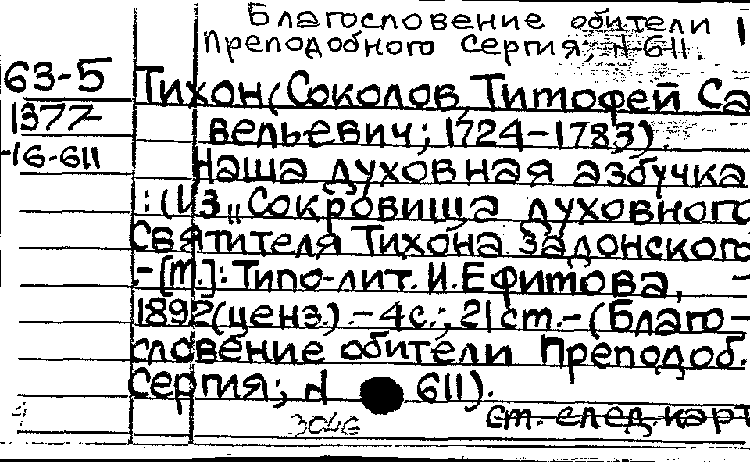 Благословение обители 1
Преподобного Сергия; N 611.
63-5
1377
-16-611
Тихон (Соколов, Тимофей Са
вельевич; 1724-1783).
Наша духовная азбучка
: (Из „Сокровища духовного
Святителя Тихона Задонского
.-[М.]: Типо-лит. И. Ефимова, -
1892 (ценз.) .-4с.; 21 см.-(Благо-
словение обители Преподоб.
Сергия; N 611).
3046
см. след. карт